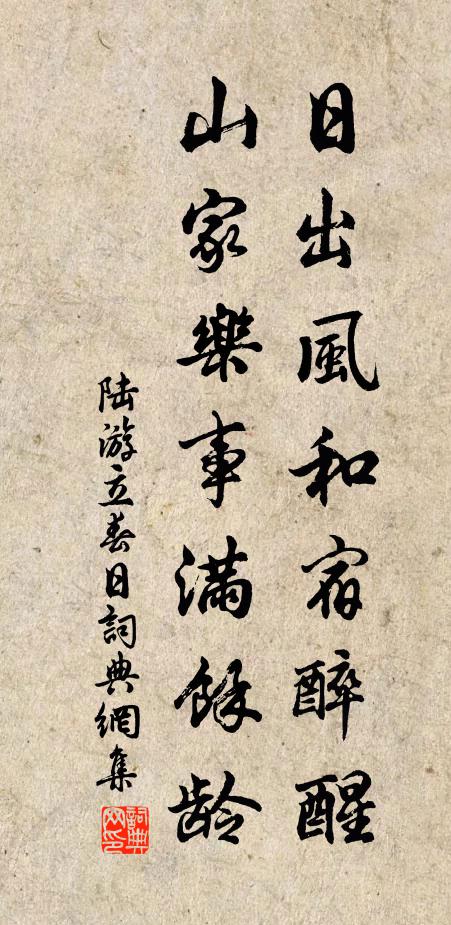 日出風和宿醉醒
山家樂事滿餘齡
陸游立春日詞典網集
詞典網印